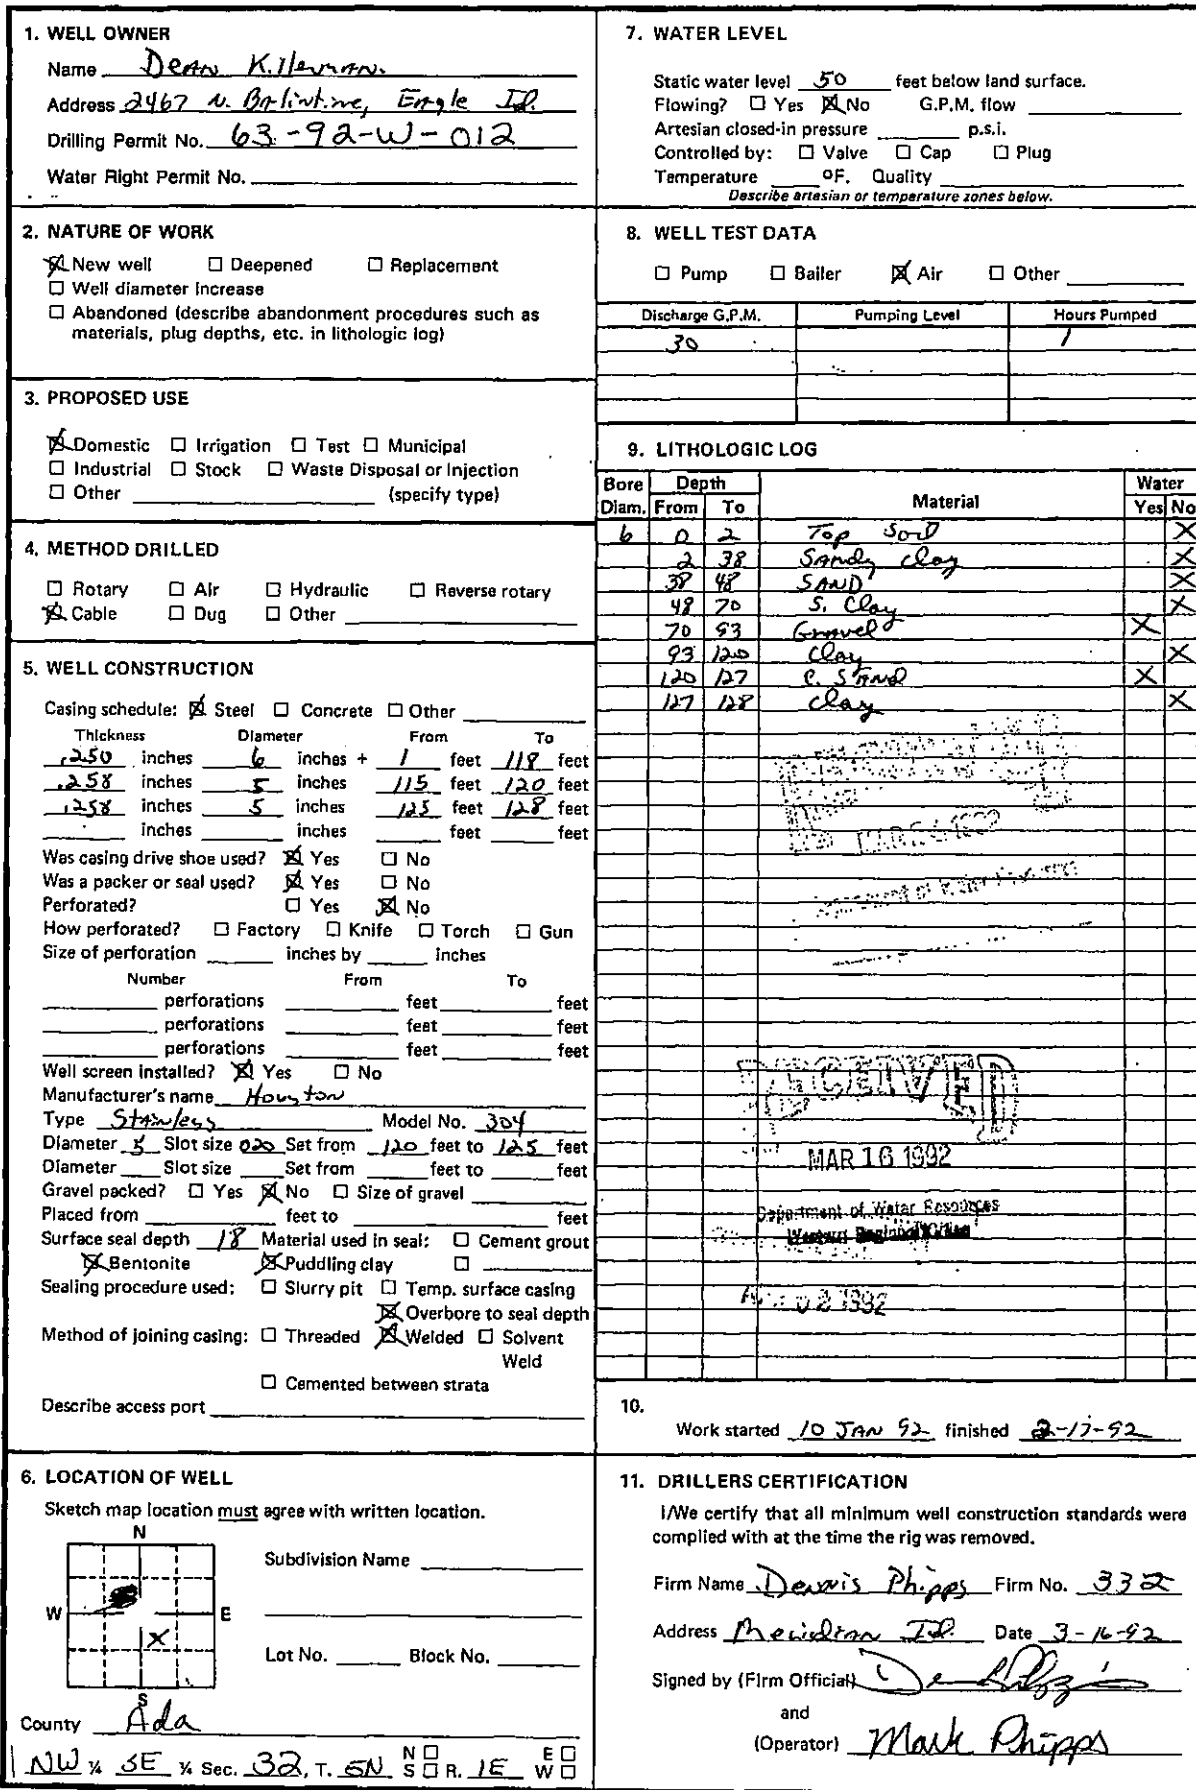 1. WELL OWNER
Name Dean Killerman.
Address 2467 N. Balintine, Eagle Id.
Drilling Permit No. 63-92-W-012
Water Right Permit No.
2. NATURE OF WORK
☒ New well ☐ Deepened ☐ Replacement
☐ Well diameter increase
☐ Abandoned (describe abandonment procedures such as
materials, plug depths, etc. in lithologic log)
3. PROPOSED USE
☒ Domestic ☐ Irrigation ☐ Test ☐ Municipal
☐ Industrial ☐ Stock ☐ Waste Disposal or Injection
☐ Other (specify type)
4. METHOD DRILLED
☐ Rotary ☐ Air ☐ Hydraulic ☐ Reverse rotary
☒ Cable ☐ Dug ☐ Other
5. WELL CONSTRUCTION
Casing schedule: ☒ Steel ☐ Concrete ☐ Other
Thickness Diameter From To
.250 inches 6 inches + 1 feet 118 feet
.258 inches 5 inches 115 feet 120 feet
.258 inches 5 inches 125 feet 128 feet
inches inches feet feet
Was casing drive shoe used? ☒ Yes ☐ No
Was a packer or seal used? ☒ Yes ☐ No
Perforated? ☐ Yes ☒ No
How perforated? ☐ Factory ☐ Knife ☐ Torch ☐ Gun
Size of perforation inches by inches
Number From To
perforations feet feet
perforations feet feet
perforations feet feet
Well screen installed? ☒ Yes ☐ No
Manufacturer's name Houston
Type Stainless Model No. 304
Diameter 5 Slot size 020 Set from 120 feet to 125 feet
Diameter Slot size Set from feet to feet
Gravel packed? ☐ Yes ☒ No ☐ Size of gravel
Placed from feet to feet
Surface seal depth 18 Material used in seal: ☐ Cement grout
☒ Bentonite ☒ Puddling clay ☐
Sealing procedure used: ☐ Slurry pit ☐ Temp. surface casing
☒ Overbore to seal depth
Method of joining casing: ☐ Threaded ☒ Welded ☐ Solvent
Weld
☐ Cemented between strata
Describe access port
6. LOCATION OF WELL
Sketch map location must agree with written location.
N
W E
X
S
Subdivision Name
Lot No. Block No.
County Ada
NW ¼ SE ¼ Sec. 32, T. 5N N ☐ S ☐ R. 1E E ☐ W ☐
7. WATER LEVEL
Static water level 50 feet below land surface.
Flowing? ☐ Yes ☒ No G.P.M. flow
Artesian closed-in pressure p.s.i.
Controlled by: ☐ Valve ☐ Cap ☐ Plug
Temperature °F. Quality
Describe artesian or temperature zones below.
8. WELL TEST DATA
☐ Pump ☐ Bailer ☒ Air ☐ Other
Discharge G.P.M. Pumping Level Hours Pumped
30 1
9. LITHOLOGIC LOG
Bore Diam. Depth From To Material Water Yes No
6 0 2 Top Soil X
2 38 Sandy Clay X
38 48 SAND X
48 70 S. Clay X
70 93 Gravel X
93 120 Clay X
120 127 C. Sand X
127 128 Clay X
RECEIVED
MAR 16 1992
Department of Water Resources
Western Regional Office
10.
Work started 10 JAN 92 finished 2-17-92
11. DRILLERS CERTIFICATION
I/We certify that all minimum well construction standards were
complied with at the time the rig was removed.
Firm Name Dennis Phipps Firm No. 332
Address Meridian Id. Date 3-16-92
Signed by (Firm Official)
and
(Operator) Mark Phipps